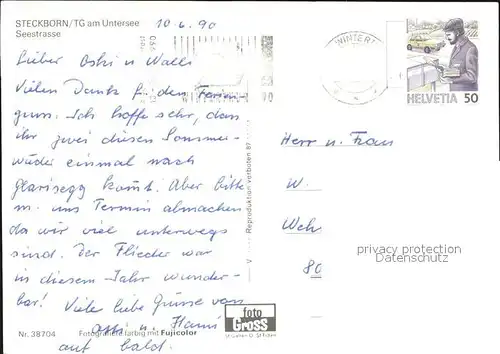 STECKBORN/TG am Untersee
Seestrasse
10.6.90
WINTERT
HELVETIA 50
Lieber Oski u Walli
Vielen Dank für den Ferien-
gruss. Ich hoffe sehr, dass
ihr zwei diesen Sommer
wieder einmal nach
Glarisegg kommt. Aber bitte
m. uns Termin abmachen
da wir viel unterwegs
sind. Der Flieder war
in diesem Jahr wunder-
bar! Viele liebe Grüsse von
u. Hanni
auf bald.
Herr u. Frau
W.
Weh
80
privacy protection
Datenschutz
Reproduktion verboten
foto
Gross
Nr. 38704
Fotografiert farbig mit Fujicolor